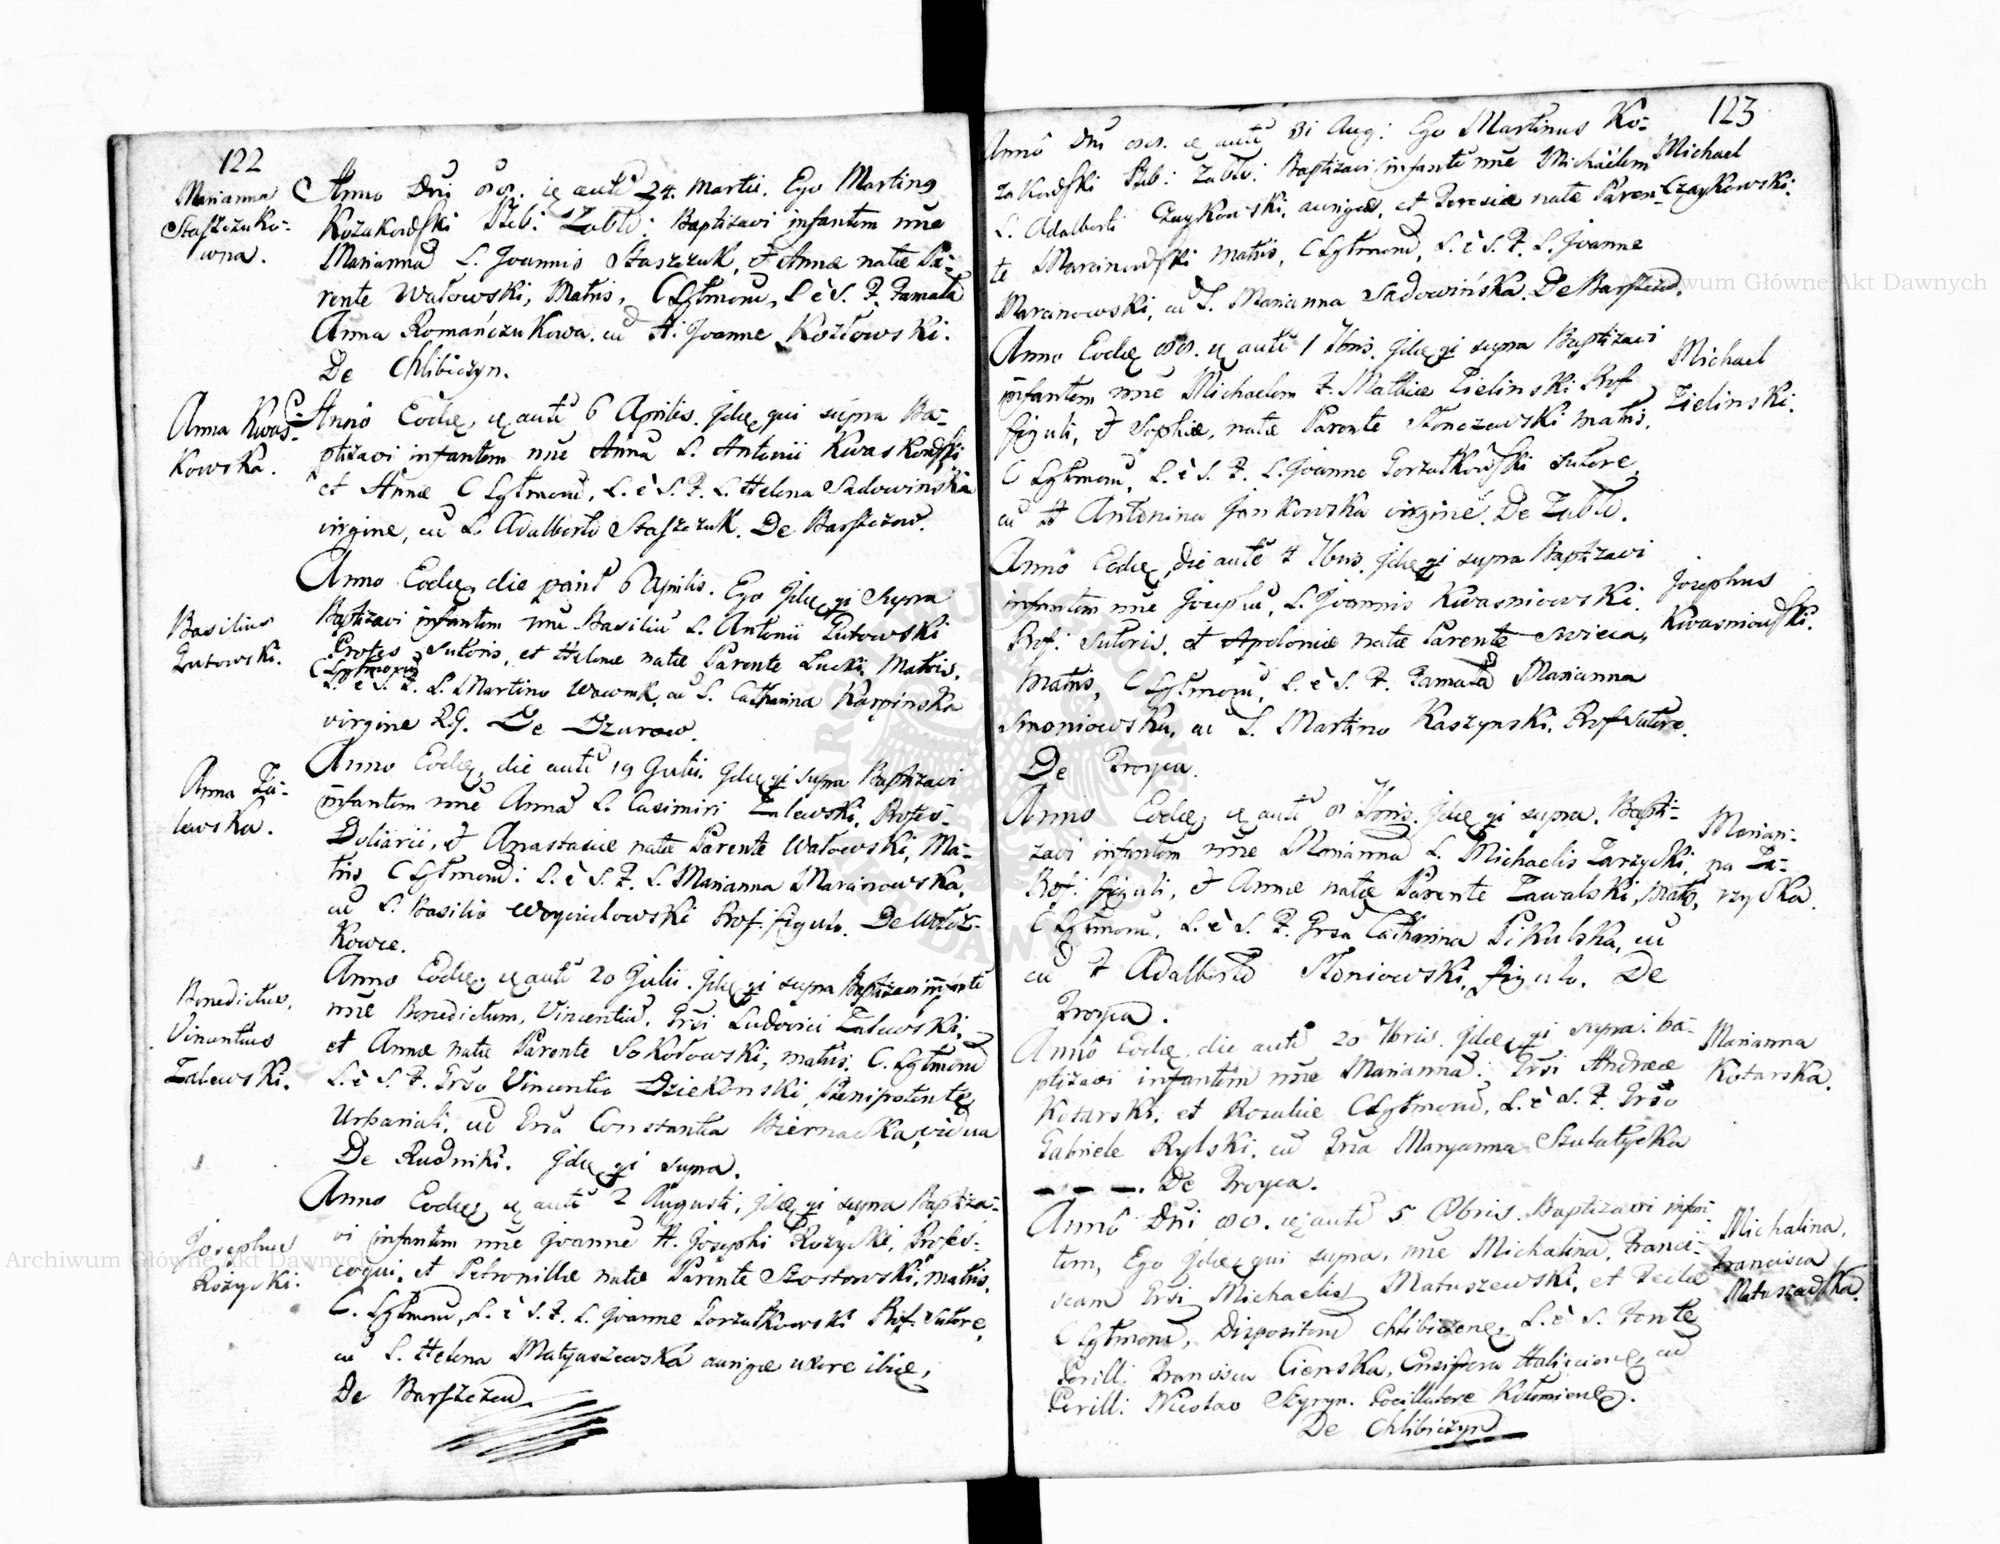 122
Marianna
Staszczuko-
wna.
Anno Dni qui supra 24. Martii. Ego Martinus
Kozakowski Zablo: Baptizavi infantem nne
Mariannã L. Joannis Staszczuk, et Annæ natæ Pa-
rente Watowski, Matris, C Lgtmorũ, L è S. F. Famata
Anna Romańczukowa. cũ H: Joanne Kozłowski.
De Chlibiczyn.
Anna Kwas-
kowska.
Anno Eodē, autē 6 Aprilis. Idē qui supra Ba-
ptizavi infantem nne Annã L. Antonii Kwaskowski
et Annæ C Lgtmorũ, L. è S. F. L. Helena Sadowinska
virgine, cũ L. Adalberto Staszczuk. De Barszczow.
Basilius
Lutowski.
Anno Eodē, die 6 Aprilis. Ego Idē qi Supra
Baptizavi infantem nne Basiliũ L. Antonii Lutowski
Profes Sutoris, et Helenæ natæ Parente Lucki, Matris,
C Lgtmorũ
L. è S. F. L. Martino Wawruk, cũ L. Catharina Kamińska
virgine De Dzurow.
Anna Za-
lewska.
Anno Eodē, die autē 19 Julii. Idē qi supra Baptizavi
infantem nne Annã L. Casimiri Zalewski, Profes-
Doliarii, et Anastasiæ natæ Parente Watowski, Ma-
tris, C Lgtmorũ: L. è S. F. L. Marianna Marcinowska,
cũ L. Basilio Woyciulowski Prof. figulo. De Wołcz-
kowce.
Benedictus,
Vincentius
Zalewski.
Anno Eodē, autē 20 Julii. Idē qi supra Baptizavi infantē
nne Benedictum, Vincentiũ. Grsi Ludovici Zalewski,
et Annæ natæ Parente Sokołowski, matris. C. Lgtmorũ
L. è S. F. Grso Vincentio Dziekonski, Plenipotente
Urbariali, cũ Grsa Constantia Biernacka, vidua
De Rudniki. Idē qi supra.
Josephus
Rozycki.
Anno Eodē, autē 2 Augusti, Idē qi supra Baptiza-
vi infantem nne Joannē H. Josephi Rozycki, Profes-
coqui, et Petronillæ natæ Parente Szostowski, matris,
C. Lgtmorũ, L. è S. F. L. Joanne Gorzutkowski Prof. Sutore,
cũ L. Helena Matyaszewska aurigæ uxore
De Barszczow.
123
Annô Dni autē 31 Aug: Ego Martinus Ko-
zakowski Zablo: Baptizavi infantē nne Michaëlem
L. Adalberti Czaykowski, aurigæ, et Teresiæ natæ Paren-
te Marcinowski Matris, C Lgtmorũ, L. è S. F. L. Joanne
Marcinowski, cũ L. Marianna Sadowińska. De Barszczow.
Michael
Czaykowski.
Anno Eodē autē 1 7bris. Idē qi supra Baptizavi
infantem nne Michaelem F. Mathiæ Zielinski Prof
figuli, et Sophiæ, natæ Parente Stonczewski matris,
C Lgtmorũ, L. è S. F. L. Joanne Gorzutkowski Sutore,
cũ H Antonina Jankowska virgine. De Zablo.
Michael
Zielinski.
Annô Eodē, die autē 4 7bris. Idē qi supra Baptizavi
infantem nne Josephũ, L. Joannis Kwasniowski
Prof: Sutoris, et Apoloniæ natæ Parente Swieca,
Matris, C Lgtmorũ, L. è S. F. Famata Marianna
Smoniowska, cũ L. Martino Kaszynski. Prof Sutore.
De Troyca.
Josephus
Kwasniowski.
Anno Eodē, autē 8 7bris. Idē qi supra. Bapti-
zavi infantem nne Mariannã L. Michaelis Zarzycki,
Prof: figuli, et Annæ natæ Parente Zawalski, Matris,
C Lgtmorũ, L. è S. F. Grsa Catharina Pikulska, cũ
cũ F Adalberto Stoniowski, figulo. De
Troyca.
Marian-
na Za-
rzycka.
Annô Eodē, die autē 20 7bris. Idē qi supra: ba-
ptizavi infantem nne Mariannã. Grsi Andreæ
Kotarski, et Rosaliæ C Lgtmorũ, L. è S. F. Grso
Gabriele Rylski. cũ Grsa Maryanna Szulatycka
- - -. De Troyca.
Marianna
Kotarska.
Annô Dni autē 5 Obris. Baptizavi infan-
tem, Ego Idē qui supra, nne Michalinã, Franci-
scam Grsi Michaelis Matuszewski, et Teclæ
C Lgtmorũ, Dispositorũ Chlibiczene, L. è S. Fonte
Perill: Francisca Cienska, Ensifera Haliciene, cũ
Perill: Nicolao Szyryn. Pocillatore Kołomiene.
De Chlibiczyn
Michalina,
Francisca
Matuszewska.
Archiwum Główne Akt Dawnych
Archiwum Główne Akt Dawnych